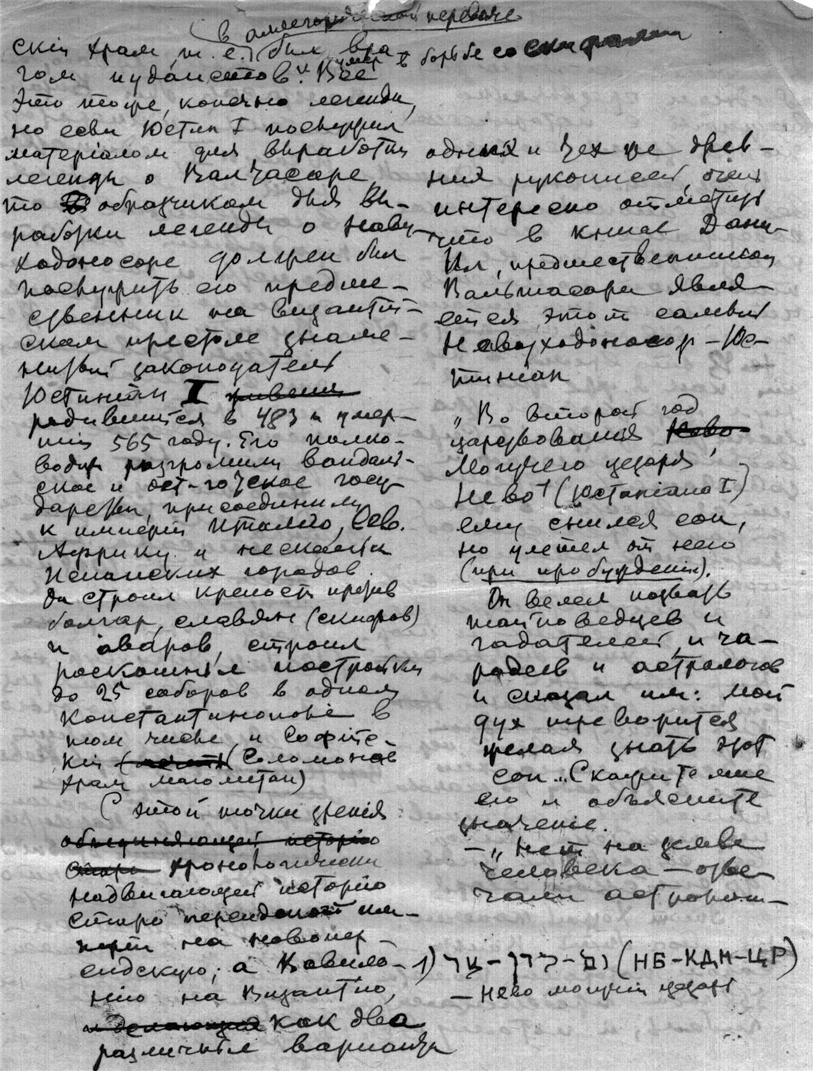 в аллегорической передаче
ский храм, т. е. был вра-
гом иудаистов и умер в борьбе со скифами
Все
это тоже, конечно легенды,
но если Юстин I послужил
матерiалом для выработки
легенды о Валтасаре,
то образчиком для вы-
работки легенды о Наву-
ходоносоре должен был
послужить его предше-
ственник на византiй-
ском престоле знаме-
нитый законодатель
Юстинiан I
родившийся в 483 и умер-
шiй 565 году. Его полко-
водцы разгромили вандаль-
ское и ост-готское госу-
дарства, присоединили
к империи Италию, Сев.
Африку и несколько
Испанских городов.
Он строил крепости против
болгар, славян (скифов)
и аваров, строил
роскошные постройки
до 25 соборов в одном
Константинополе в
том числе и Софiйс-
кiй (Соломонов
храм магометан)
С этой точки зренiя
объединяющей исторiю
хронологически
надвигающей исторiю
старо персидской им-
перiи на новопер-
сидскую, а Вавило-
нiю на Византiю,
и делающая как два
различные варианта
одних и тех же древ-
них рукописей, очень
интересно отметить
что в книге Дани-
ил, предшественником
Вальтасара явля-
ется этот самый
Навуходоносор-Юс-
тинiан
„Во второй год
царствования Нево
могучего царя
Нево¹ (Юстинiана I)
ему снился сон,
но улетел от него
(при пробужденiи).
Он велел позвать
тайноведцев и
гадателей, и ча-
родеев и астрологов
и сказал им: мой
дух тревожится
желая знать этот
сон... Скажите мне
его и объясните
значенiе.
— „Нет на земле
человека — отве-
чали астрологи —
1) נב-כדן-צר (НБ-КДН-ЦР)
— Нево могучiй царь